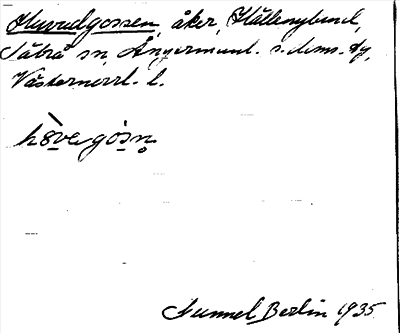 Huvudgossen, åker, Hällenyland,
Säbrå sn, Ångermanl. s. doms. tg,
Västernorrl. l.
Gunnel Berlin 1935